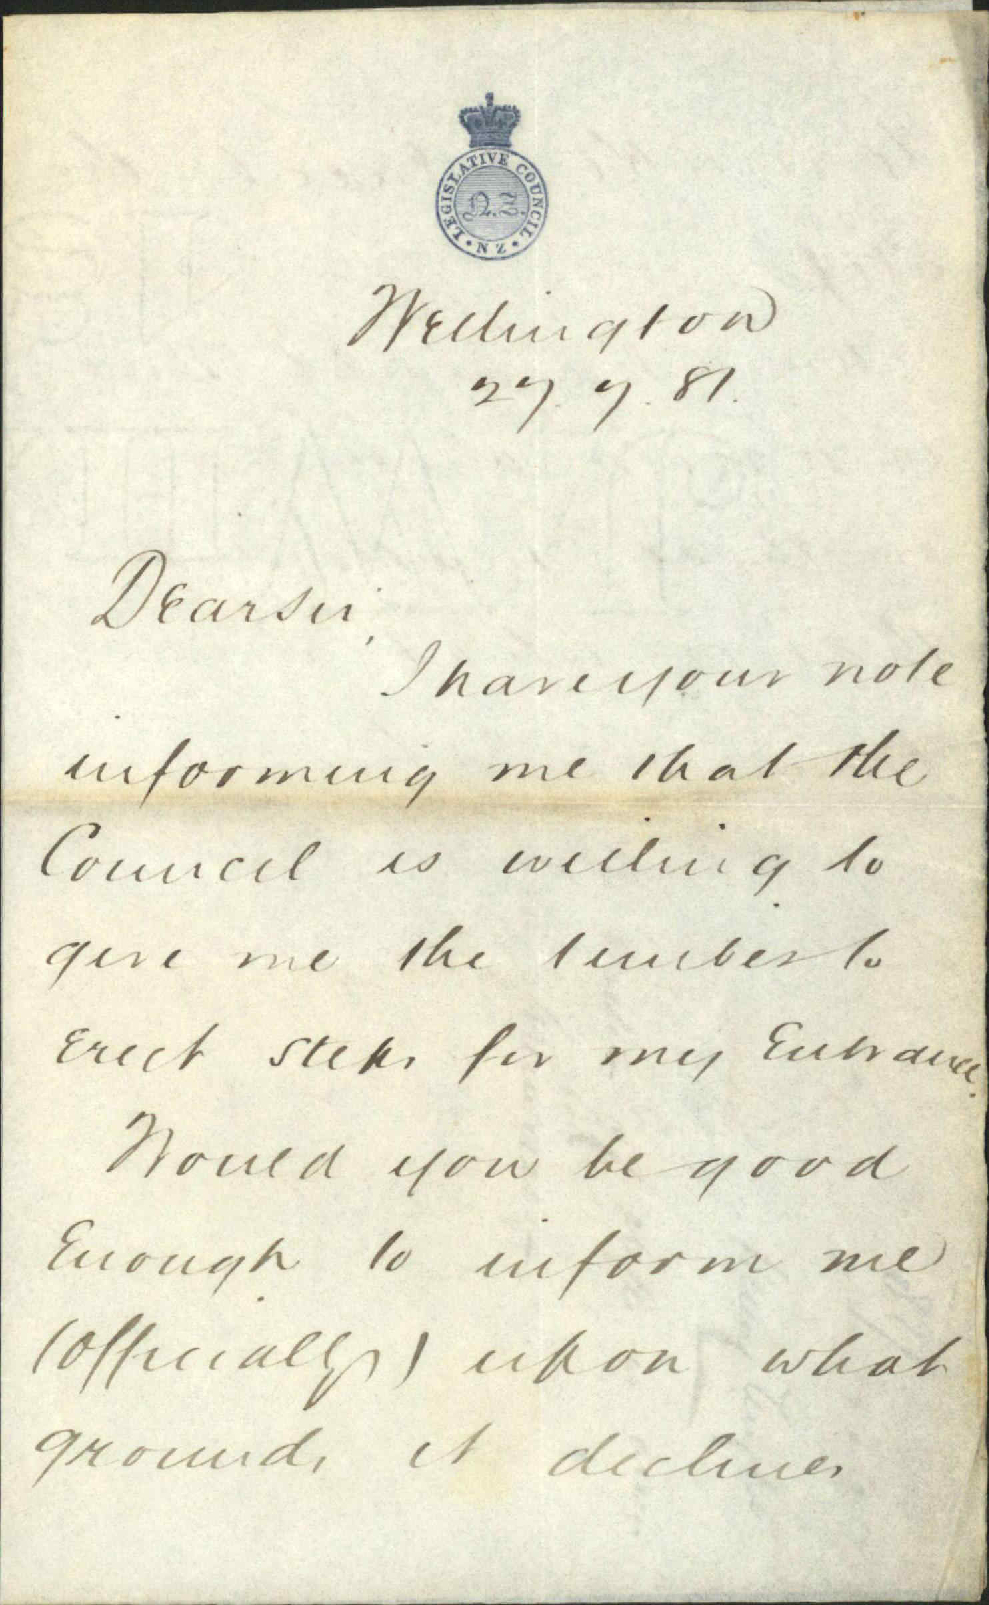 LEGISLATIVE COUNCIL
N.Z.
NZ
Wellington
27. 7. 81.
Dear Sir,
I have your note
informing me that the
Council is willing to
give me the timber to
Erect steps for my Entrance.
Would you be good
Enough to inform me
(Officially) upon what
grounds it declines